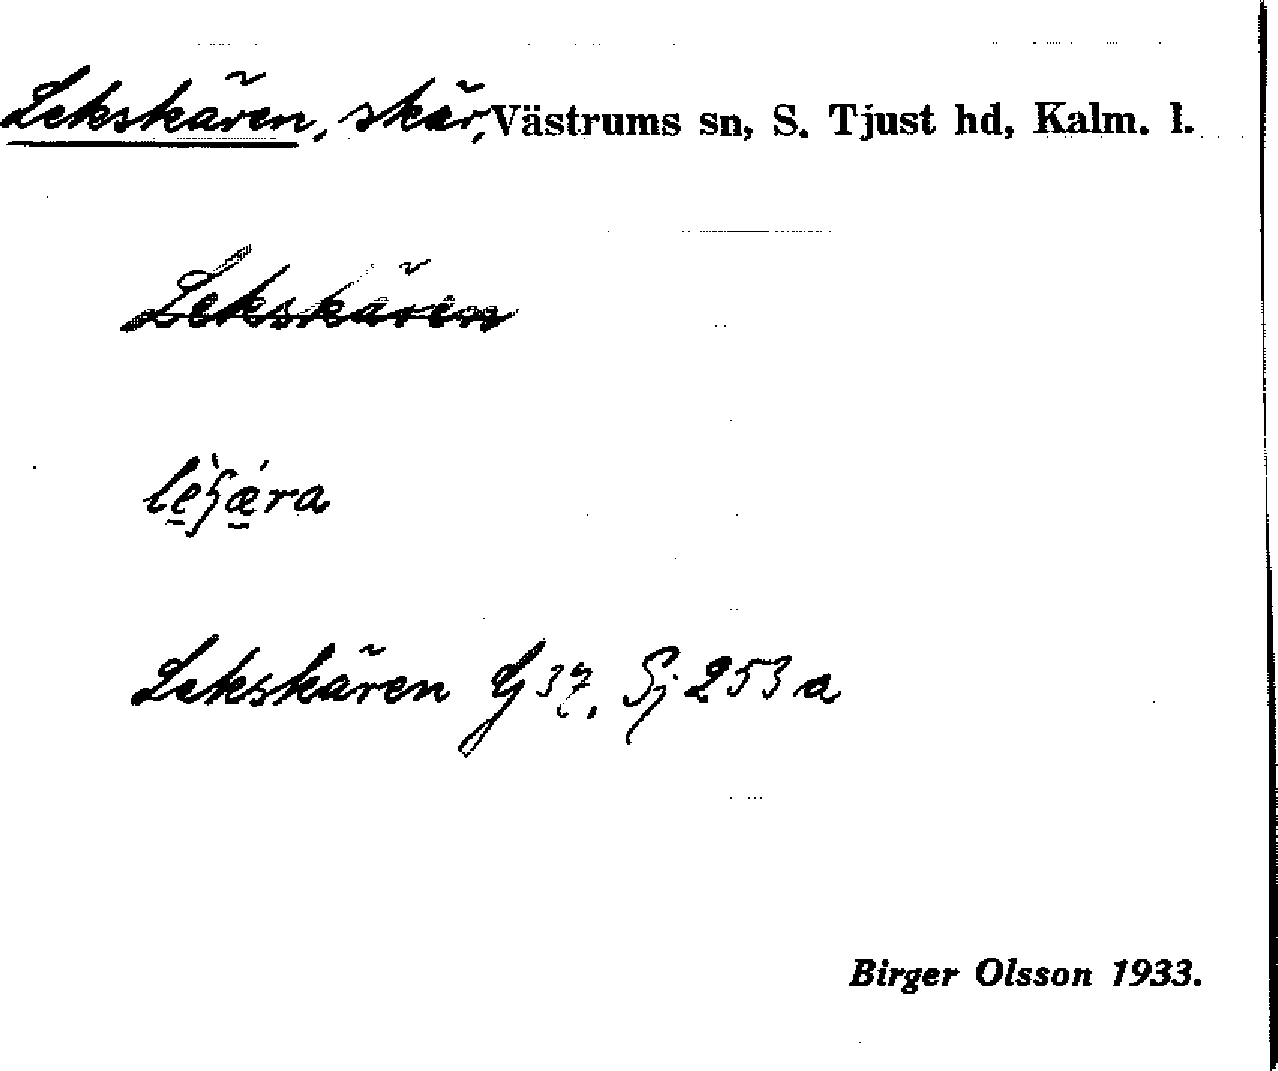 Lekskären, skär, Västrums sn, S. Tjust hd, Kalm. l.
Lekskären
Lekskären G 37, Sj 253 a
Birger Olsson 1933.